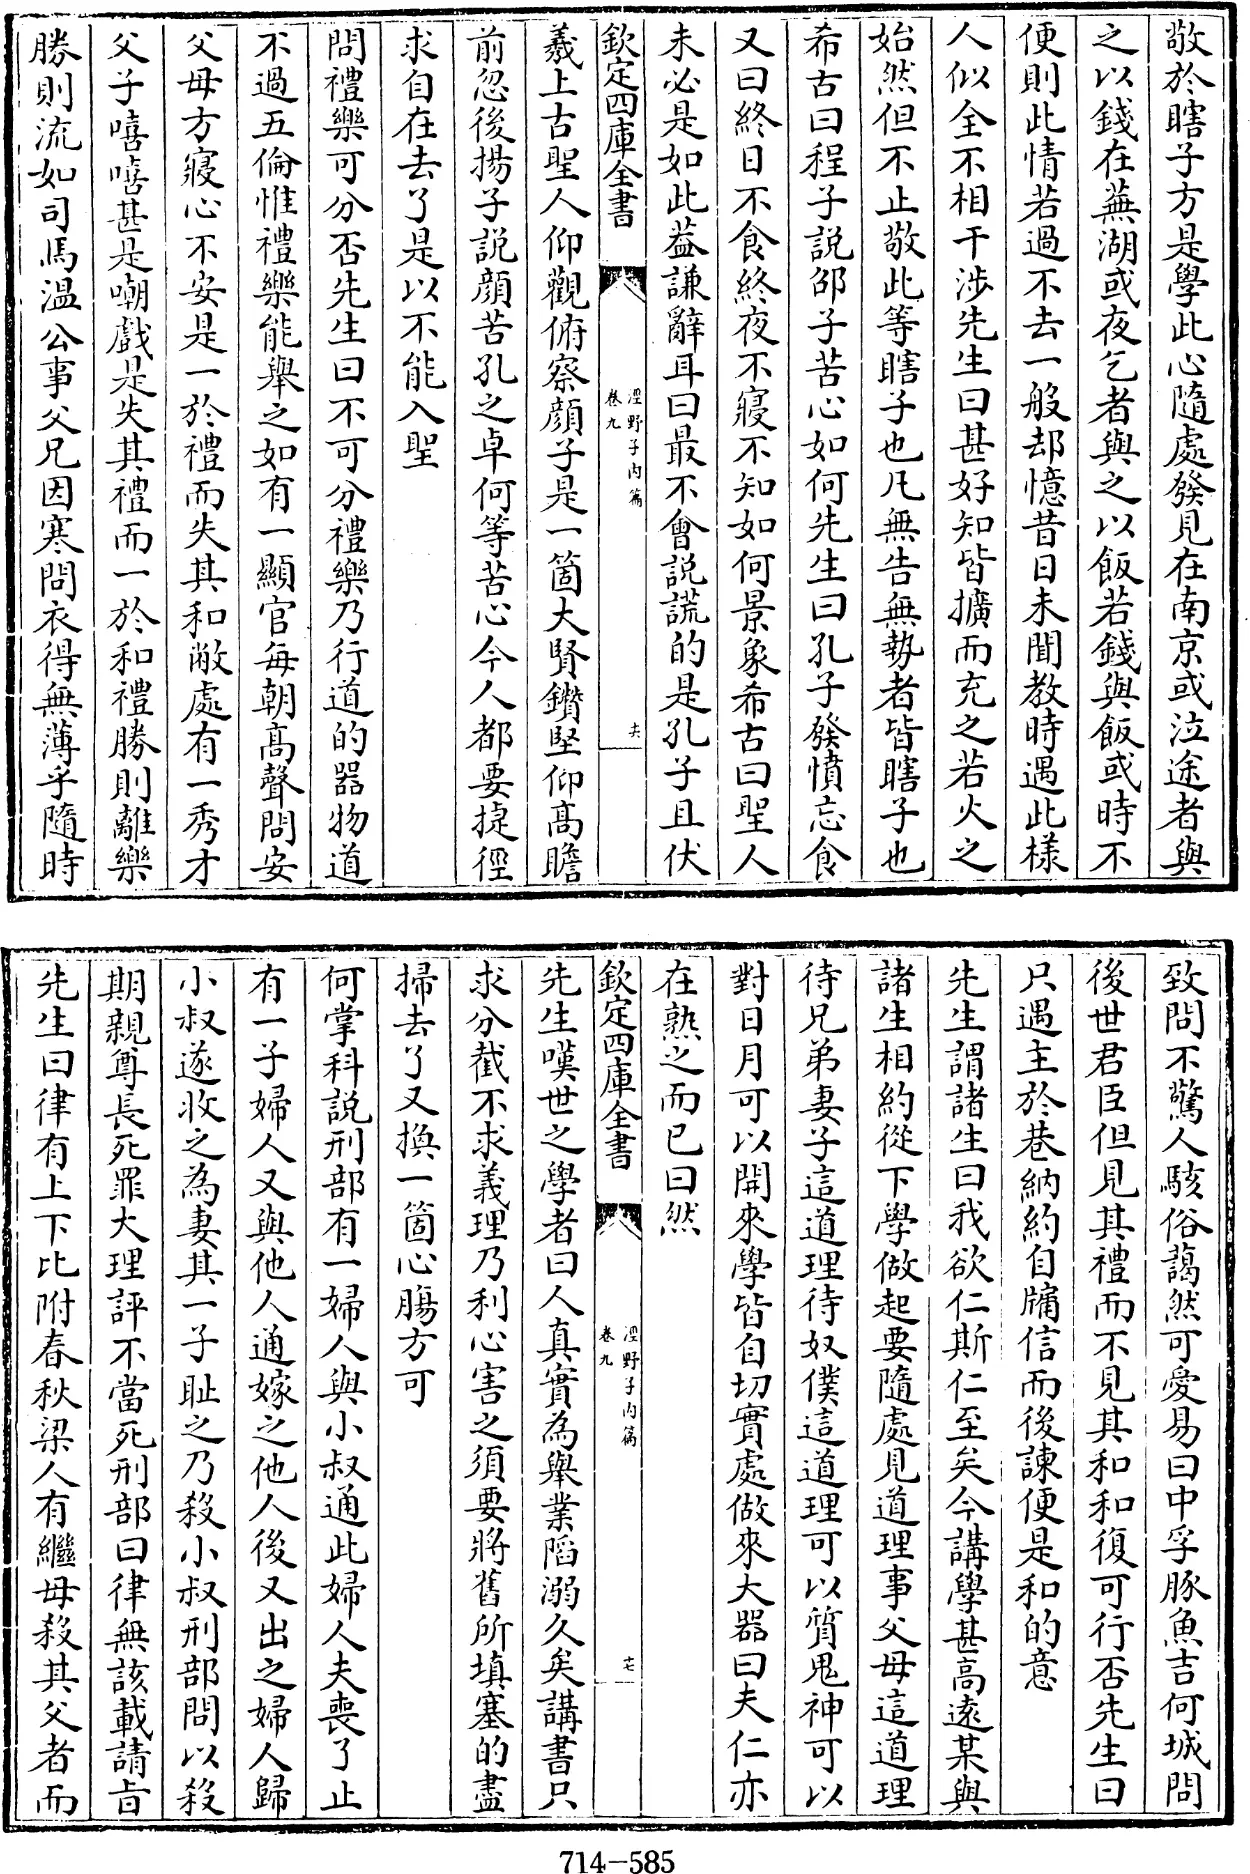 敬於瞎子方是學此心隨處發見在南京或泣途者與
之以錢在蕪湖或夜乞者與之以飯若錢與飯或時不
便則此情若過不去一般却憶昔日未聞教時遇此樣
人似全不相干涉先生曰甚好知皆擴而充之若火之
始然但不止敬此等瞎子也凡無告無勢者皆瞎子也
希古曰程子說邵子苦心如何先生曰孔子發憤忘食
又曰終日不食終夜不寢不知如何景象希古曰聖人
未必是如此葢謙辭耳曰最不會説謊的是孔子且伏
欽定四庫全書
涇野子内篇
卷九
羲上古聖人仰觀俯察顔子是一箇大賢鑽堅仰高瞻
前忽後揚子説顔苦孔之卓何等苦心今人都要捷徑
求自在去了是以不能入聖
問禮樂可分否先生曰不可分禮樂乃行道的器物道
不過五倫惟禮樂能舉之如有一顯官每朝高聲問安
父母方寢心不安是一於禮而失其和敝處有一秀才
父子嘻嘻甚是嘲戲是失其禮而一於和禮勝則離樂
勝則流如司馬溫公事父兄因寒問衣得無薄乎隨時
致問不驚人駭俗藹然可愛易曰中孚豚魚吉何城問
後世君臣但見其禮而不見其和和復可行否先生曰
只遇主於巷納約自牖信而後諫便是和的意
先生謂諸生曰我欲仁斯仁至矣今講學甚高遠某與
諸生相約從下學做起要隨處見道理事父母這道理
待兄弟妻子這道理待奴僕這道理可以質鬼神可以
對日月可以開來學皆自切實處做來大器曰夫仁亦
在熟之而已曰然
欽定四庫全書
涇野子内篇
卷九
先生嘆世之學者曰人真實為舉業陷溺久矣講書只
求分截不求義理乃利心害之須要將舊所填塞的盡
掃去了又換一箇心腸方可
何掌科説刑部有一婦人與小叔通此婦人夫喪了止
有一子婦人又與他人通嫁之他人後又出之婦人歸
小叔遂收之為妻其一子耻之乃殺小叔刑部問以殺
期親尊長死罪大理評不當死刑部曰律無該載請旨
先生曰律有上下比附春秋梁人有繼母殺其父者而
714-585